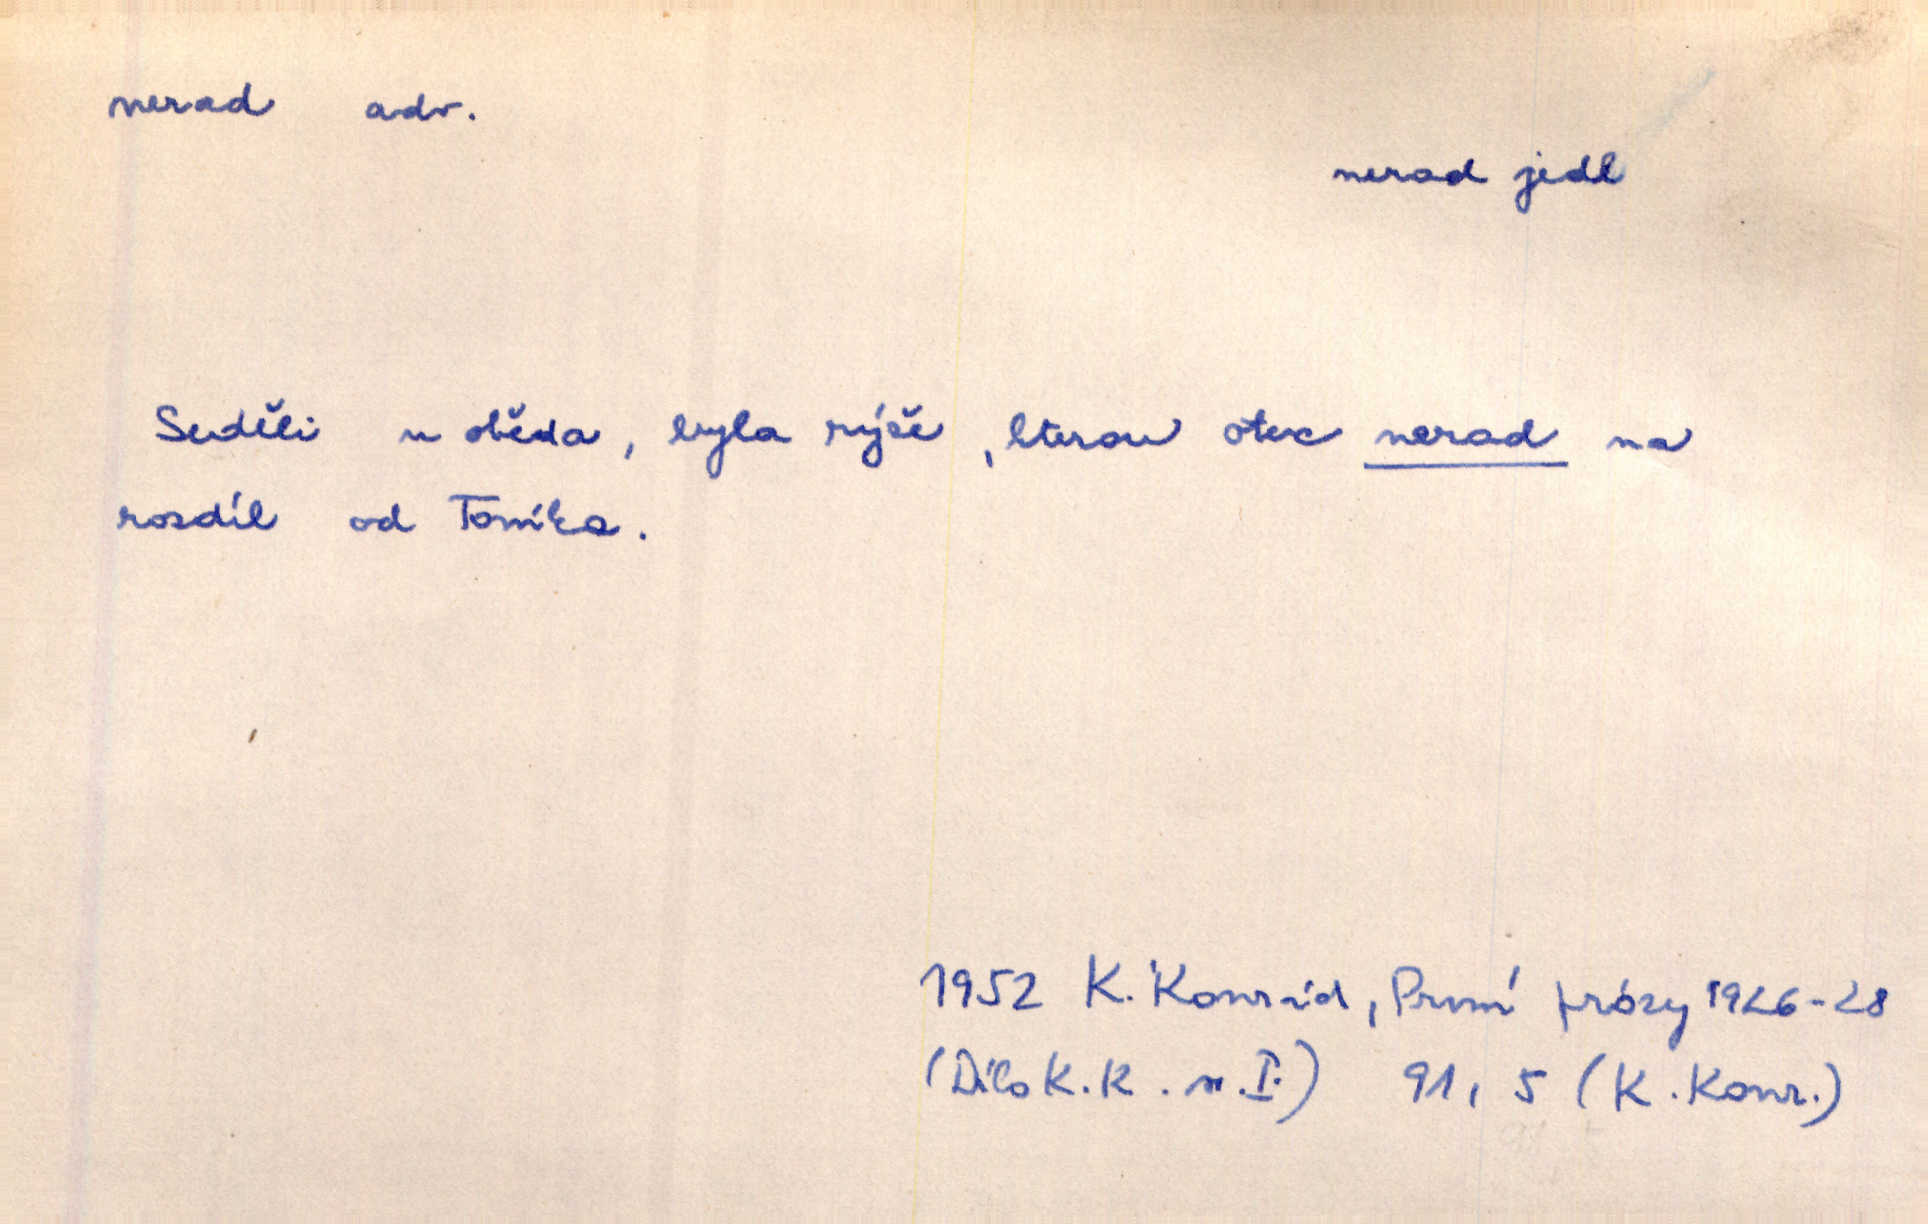 nerad adv.
nerad jedl
Seděli u oběda, byla rýže, kterou otec nerad na
rozdíl od Toníka.
1952 K. Konrád, První prózy 1926-28
(Dílo K. K. sv. I.) 91, 5 (K. Konr.)